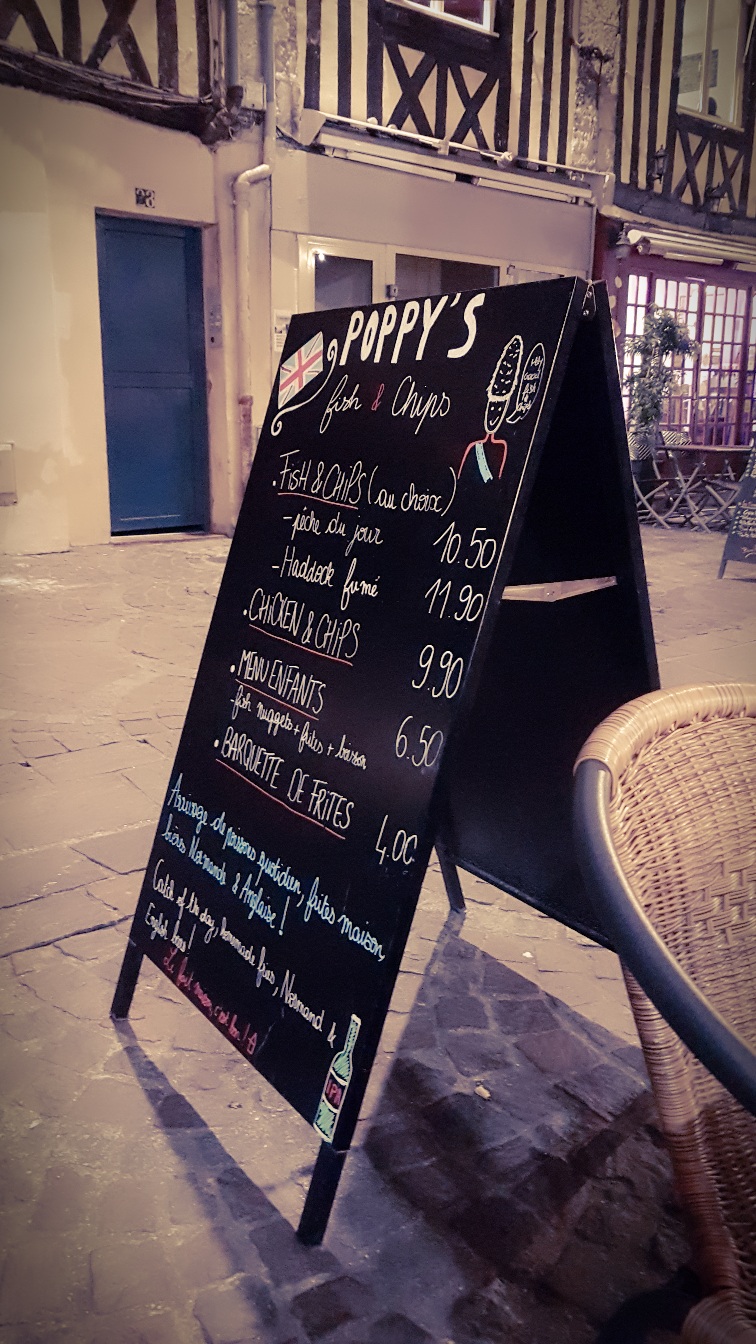 28
POPPY'S
fish & Chips
Good
fish
&
· FISH & CHIPS (au choix)
- pêche du jour 10.50
- Haddock fumé 11.90
· CHICKEN & CHIPS 9.90
· MENU ENFANTS 6.50
- fish nuggets + frites + boisson
· BARQUETTE DE FRITES 4.00
Arrivage de poissons quotidien, frites maison,
bières Normande & Anglaise !
Catch of the day, homemade fries, Normand &
English beers !
Le fait maison, c'est bon !
IPA